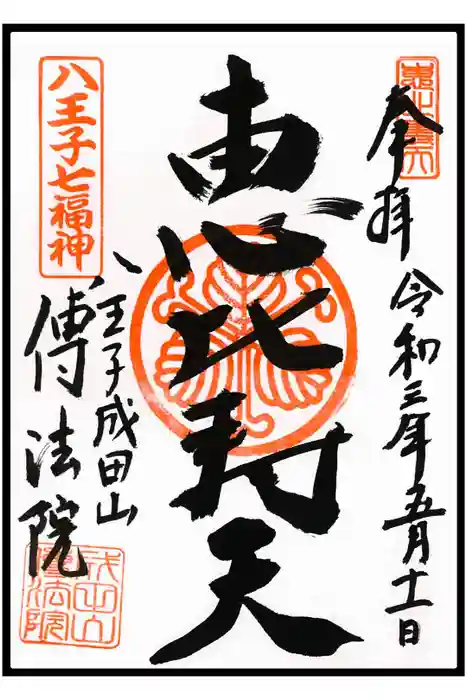 奉拝
令和三年五月十一日
恵比寿天
八王子七福神
八王子成田山
傳法院
成田山
傳法院